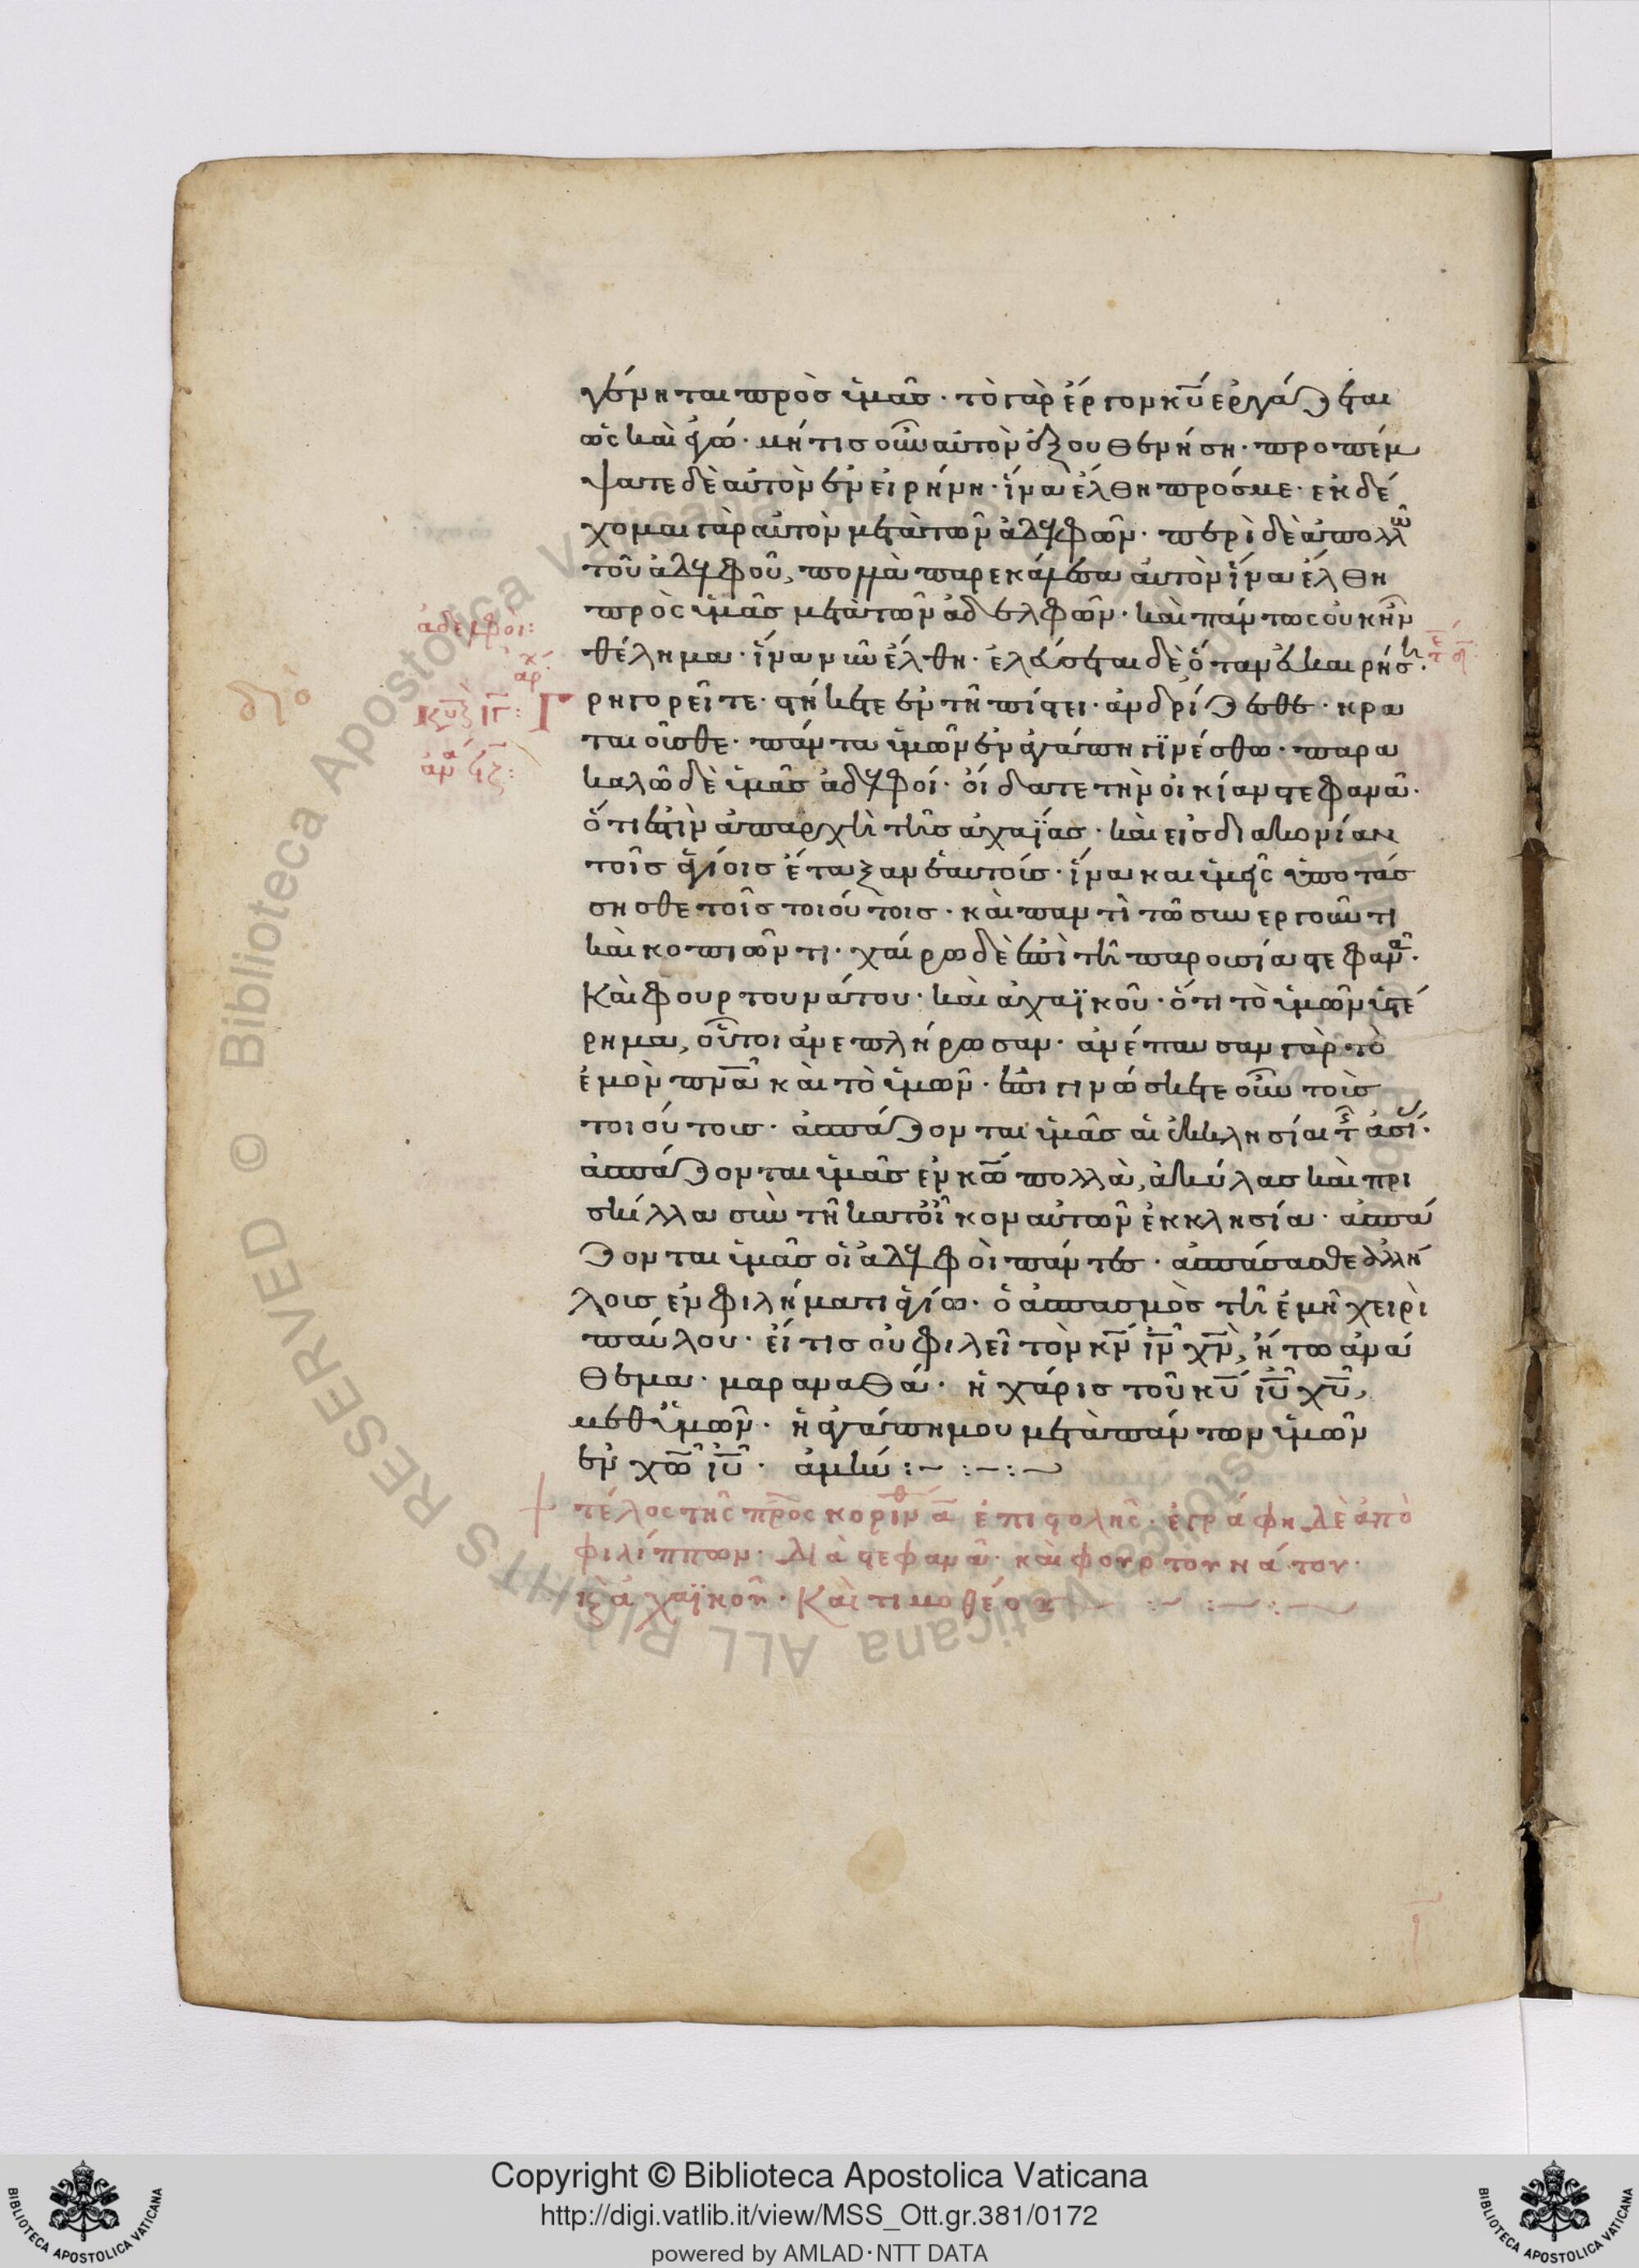 γένηται πρὸς ὑμᾶς · τὸ γὰρ ἔργον κ̅υ̅ ἐργάζεται
ὡς καὶ ἐγώ · μή τις οὖν αὐτὸν ἐξουθενήση · προπέμ
ψατε δὲ αὐτὸν ἐν εἰρήνη · ἵνα ἔλθη πρός με · ἐκδέ
χομαι γὰρ αὐτὸν μετὰ τῶν ἀδελφῶν · περὶ δὲ ἀπολλὼ
τοῦ ἀδελφοῦ, πολλὰ παρεκάλεσα αὐτὸν ἵνα ἔλθη
πρὸς ὑμᾶς μετὰ τῶν ἀδελφῶν · καὶ πάντως οὐκ ἦν
θέλημα · ἵνα νῦν ἔλθη · ἐλεύσεται δὲ ὅταν εὐκαιρήση ·
ἀδελφοί:
Γρηγορεῖτε · στήκετε ἐν τῆ πίστει · ἀνδρίζεσθε · κρα
ταιοῦσθε · πάντα ὑμῶν ἐν ἀγάπη γϊνέσθω · παρα
καλῶ δὲ ὑμᾶς ἀδελφοί · οἴδατε τὴν οἰκίαν στεφανᾶ ·
ὅτι ἐστὶν ἀπαρχὴ τῆς ἀχαΐας · καὶ εἰς διακονίαν
τοῖς ἁγίοις ἔταξαν ἑαυτούς · ἵνα και ὑμεῖς ὑποτάσ
σησθε τοῖς τοιούτοις · καὶ παντὶ τῶ συνεργοῦντι
καὶ κοπιῶντι · χαίρω δὲ ἐπὶ τῆ παρουσία στεφανᾶ ·
Καὶ φουρτουνάτου · καὶ ἀχαϊκοῦ · ὅτι τὸ ὑμῶν ὑστέ
ρημα, οὗτοι ἀνεπλήρωσαν · ἀνέπαυσαν γὰρ τὸ
ἐμὸν π̅ν̅α̅ καὶ τὸ ὑμῶν · ἐπιγινώσκετε οὖν τοὺς
τοιούτους · ἀσπάζονται ὑμᾶς αἱ ἐκκλησίαι τῆς ἀσί ·
ἀσπάζονται ὑμᾶς ἐν κ̅ω̅ πολλὰ, ἀκύλας καὶ πρι
σκίλλα σὺν τῆ κατ' οἶκον αὐτῶν ἐκκλησία · ἀσπά
ζονται ὑμᾶς οἱ ἀδελφοὶ πάντες · ἀσπάσασθε ἀλλή
λους ἐν φιλήματι ἁγίω · ὁ ἀσπασμὸς τῆ ἐμῆ χειρὶ
παύλου · εἴ τις οὐ φιλεῖ τὸν κ̅ν̅ ἰ̅ν̅ χ̅ν̅, ἤτω ἀνά
θεμα · μαραναθά · ἡ χάρις τοῦ κ̅υ̅ ἰ̅υ̅ χ̅υ̅,
μεθ' ὑμῶν · ἡ ἀγάπη μου μετὰ πάντων ὑμῶν
ἐν χ̅ω̅ ἰ̅υ̅ · ἀμήν :~ :~:~
+ τέλος τῆς πρὸς κορινθ α̅ ἐπιστολῆς · ἐγράφη δὲ ἀπὸ
φιλίππων · διὰ στεφανᾶ · καὶ φουρτουνάτου ·
κ̀ ἀχαϊκοῦ · Καὶ τιμοθέου :~ :~:~
Copyright © Biblioteca Apostolica Vaticana
http://digi.vatlib.it/view/MSS_Ott.gr.381/0172
powered by AMLAD·NTT DATA
BIBLIOTECA APOSTOLICA VATICANA
BIBLIOTECA APOSTOLICA VATICANA
© Biblioteca Apostolica Vaticana ALL RIGHTS RESERVED